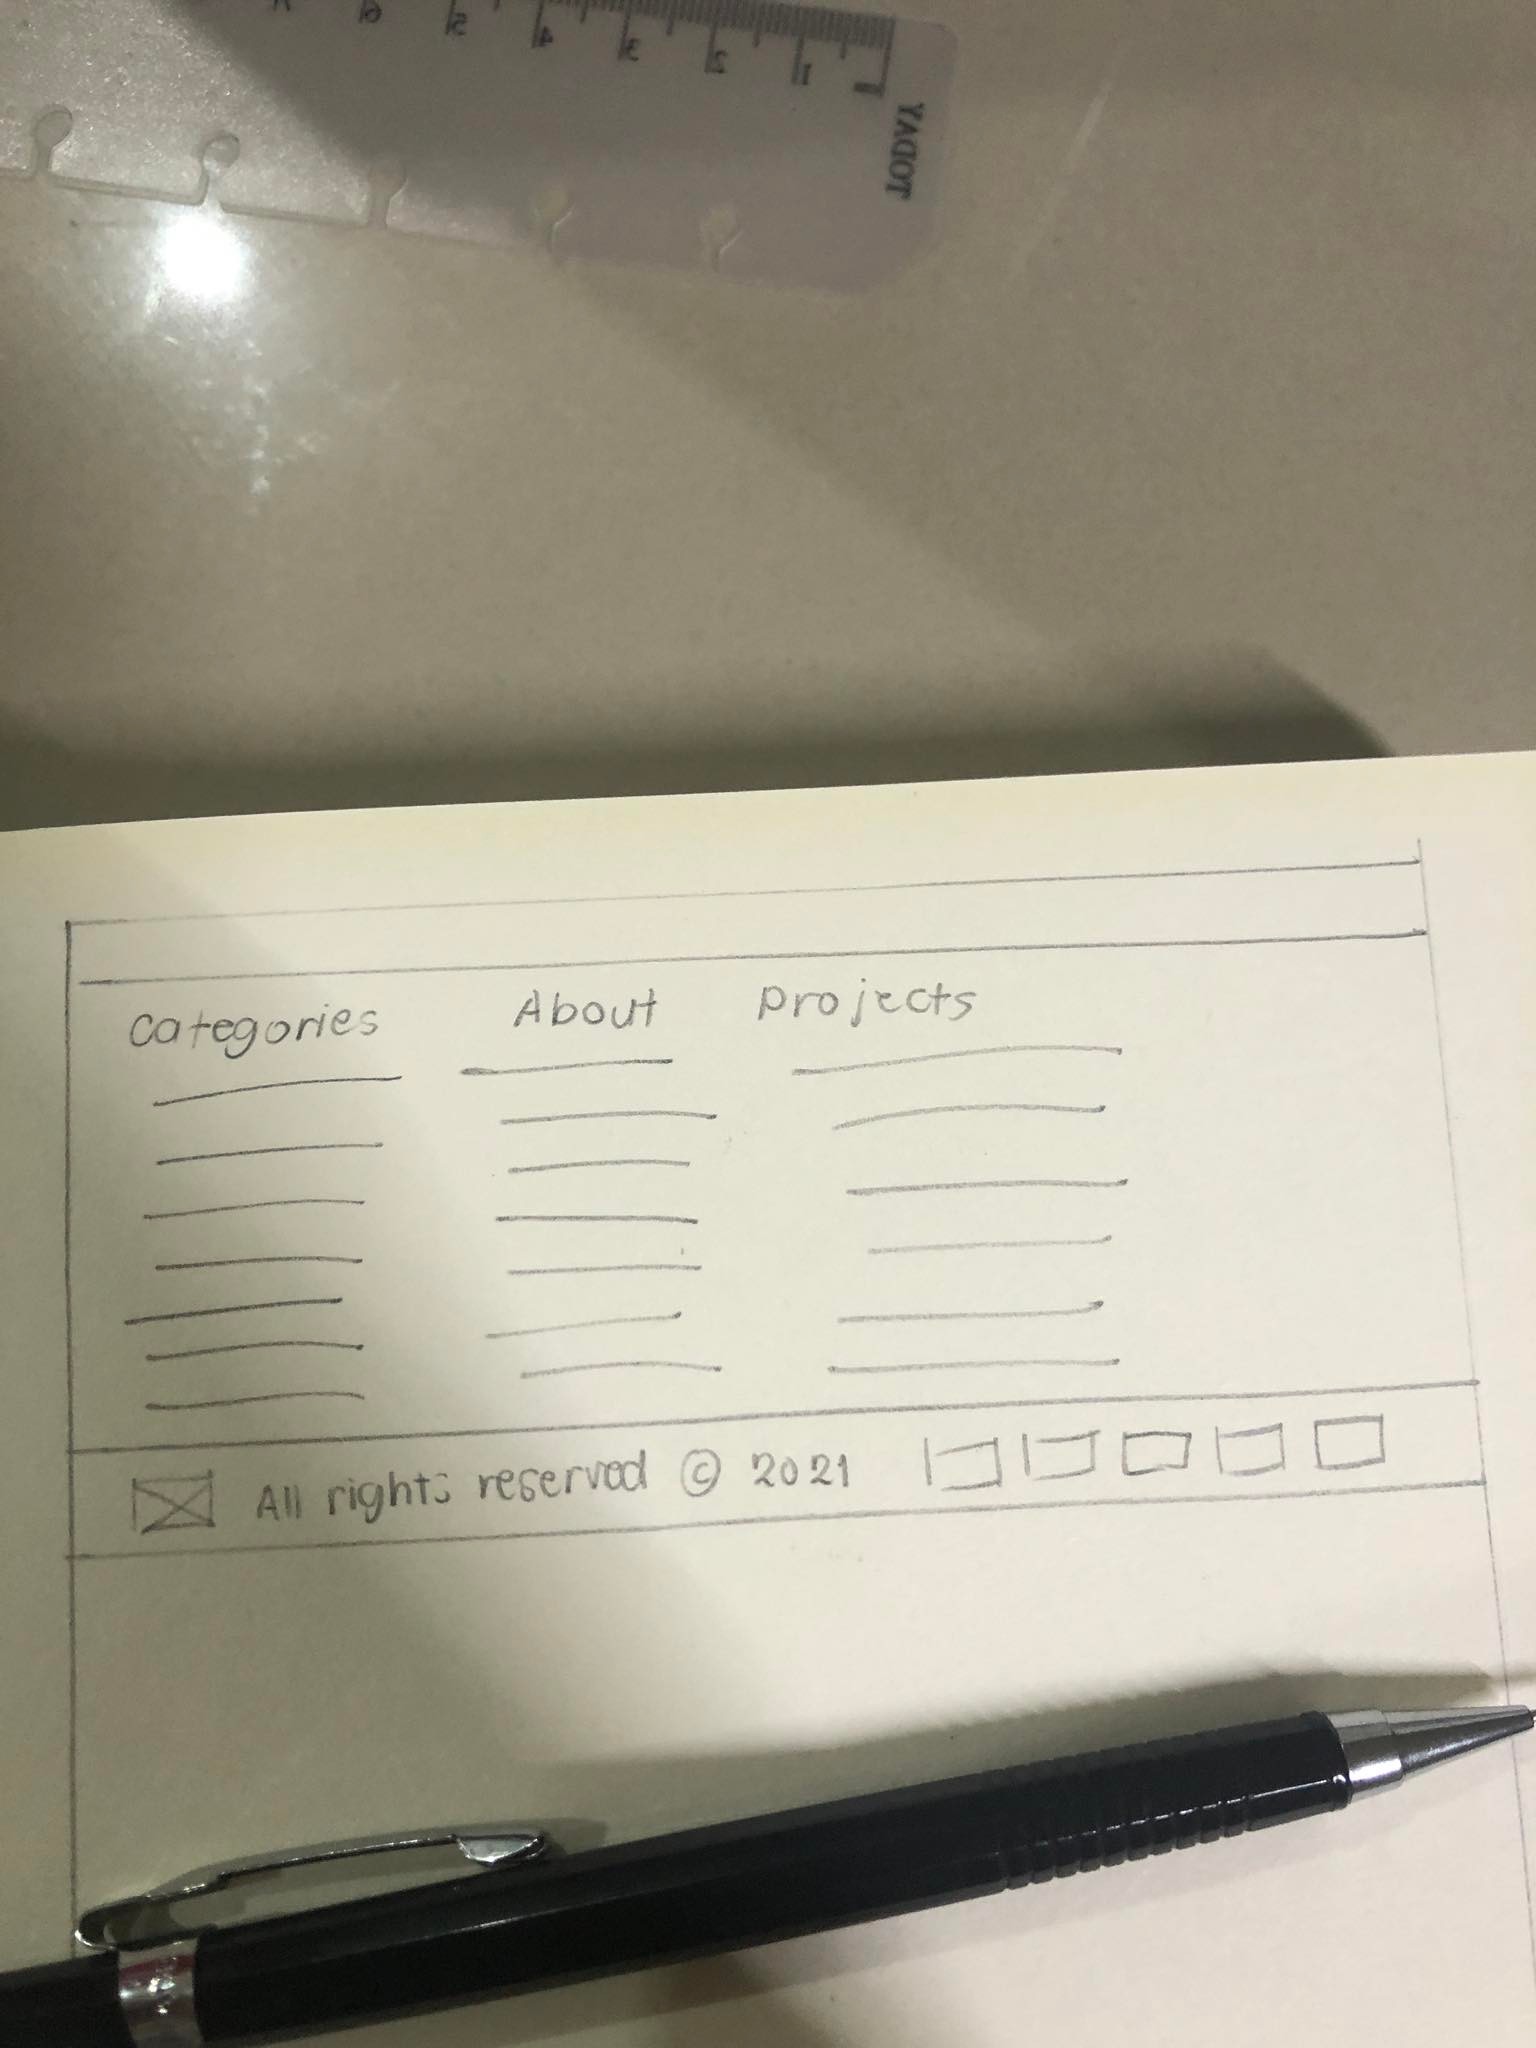 6 5 4 3 2 1
YADOT
Categories About Projects
All rights reserved © 2021